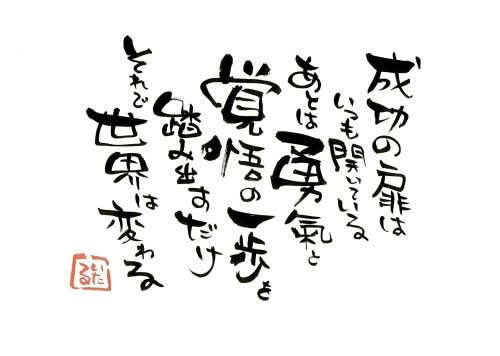 成功の扉は
いつも開いている
あとは勇氣と
覚悟の一歩を
踏み出すだけ
それで
世界は
変わる
いたる